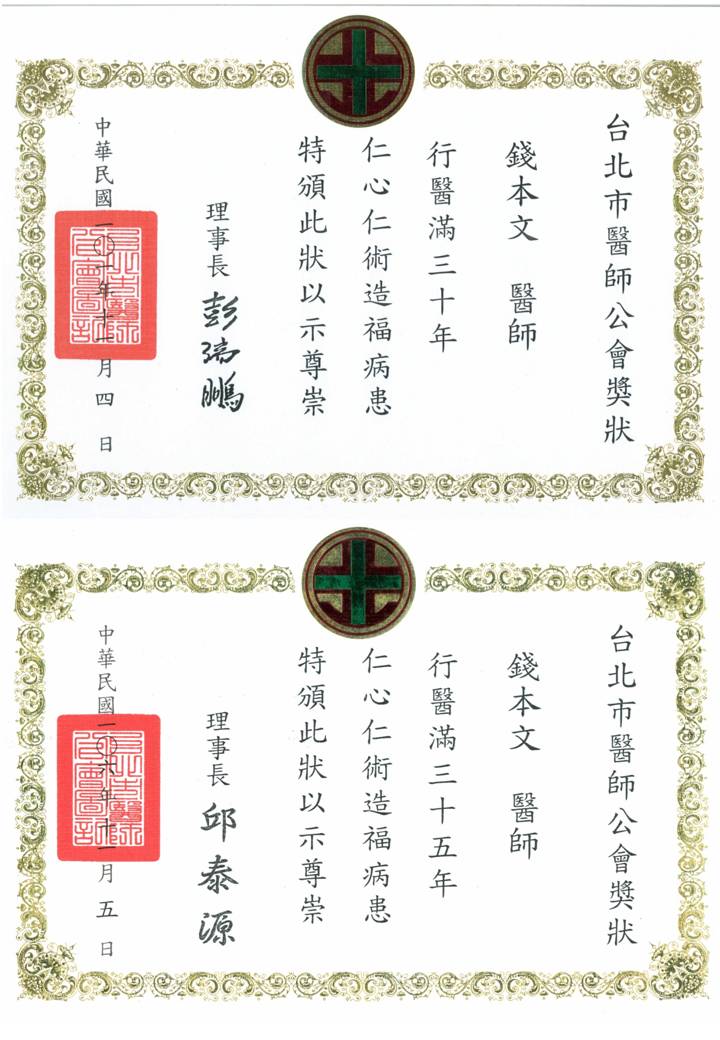 台北市醫師公會獎狀
錢本文 醫師
行醫滿三十年
仁心仁術造福病患
特頒此狀以示尊崇
理事長 彭瑞鵬
中華民國一〇一年十一月四日
台北市醫師公會獎狀
錢本文 醫師
行醫滿三十五年
仁心仁術造福病患
特頒此狀以示尊崇
理事長 邱泰源
中華民國一〇六年十一月五日